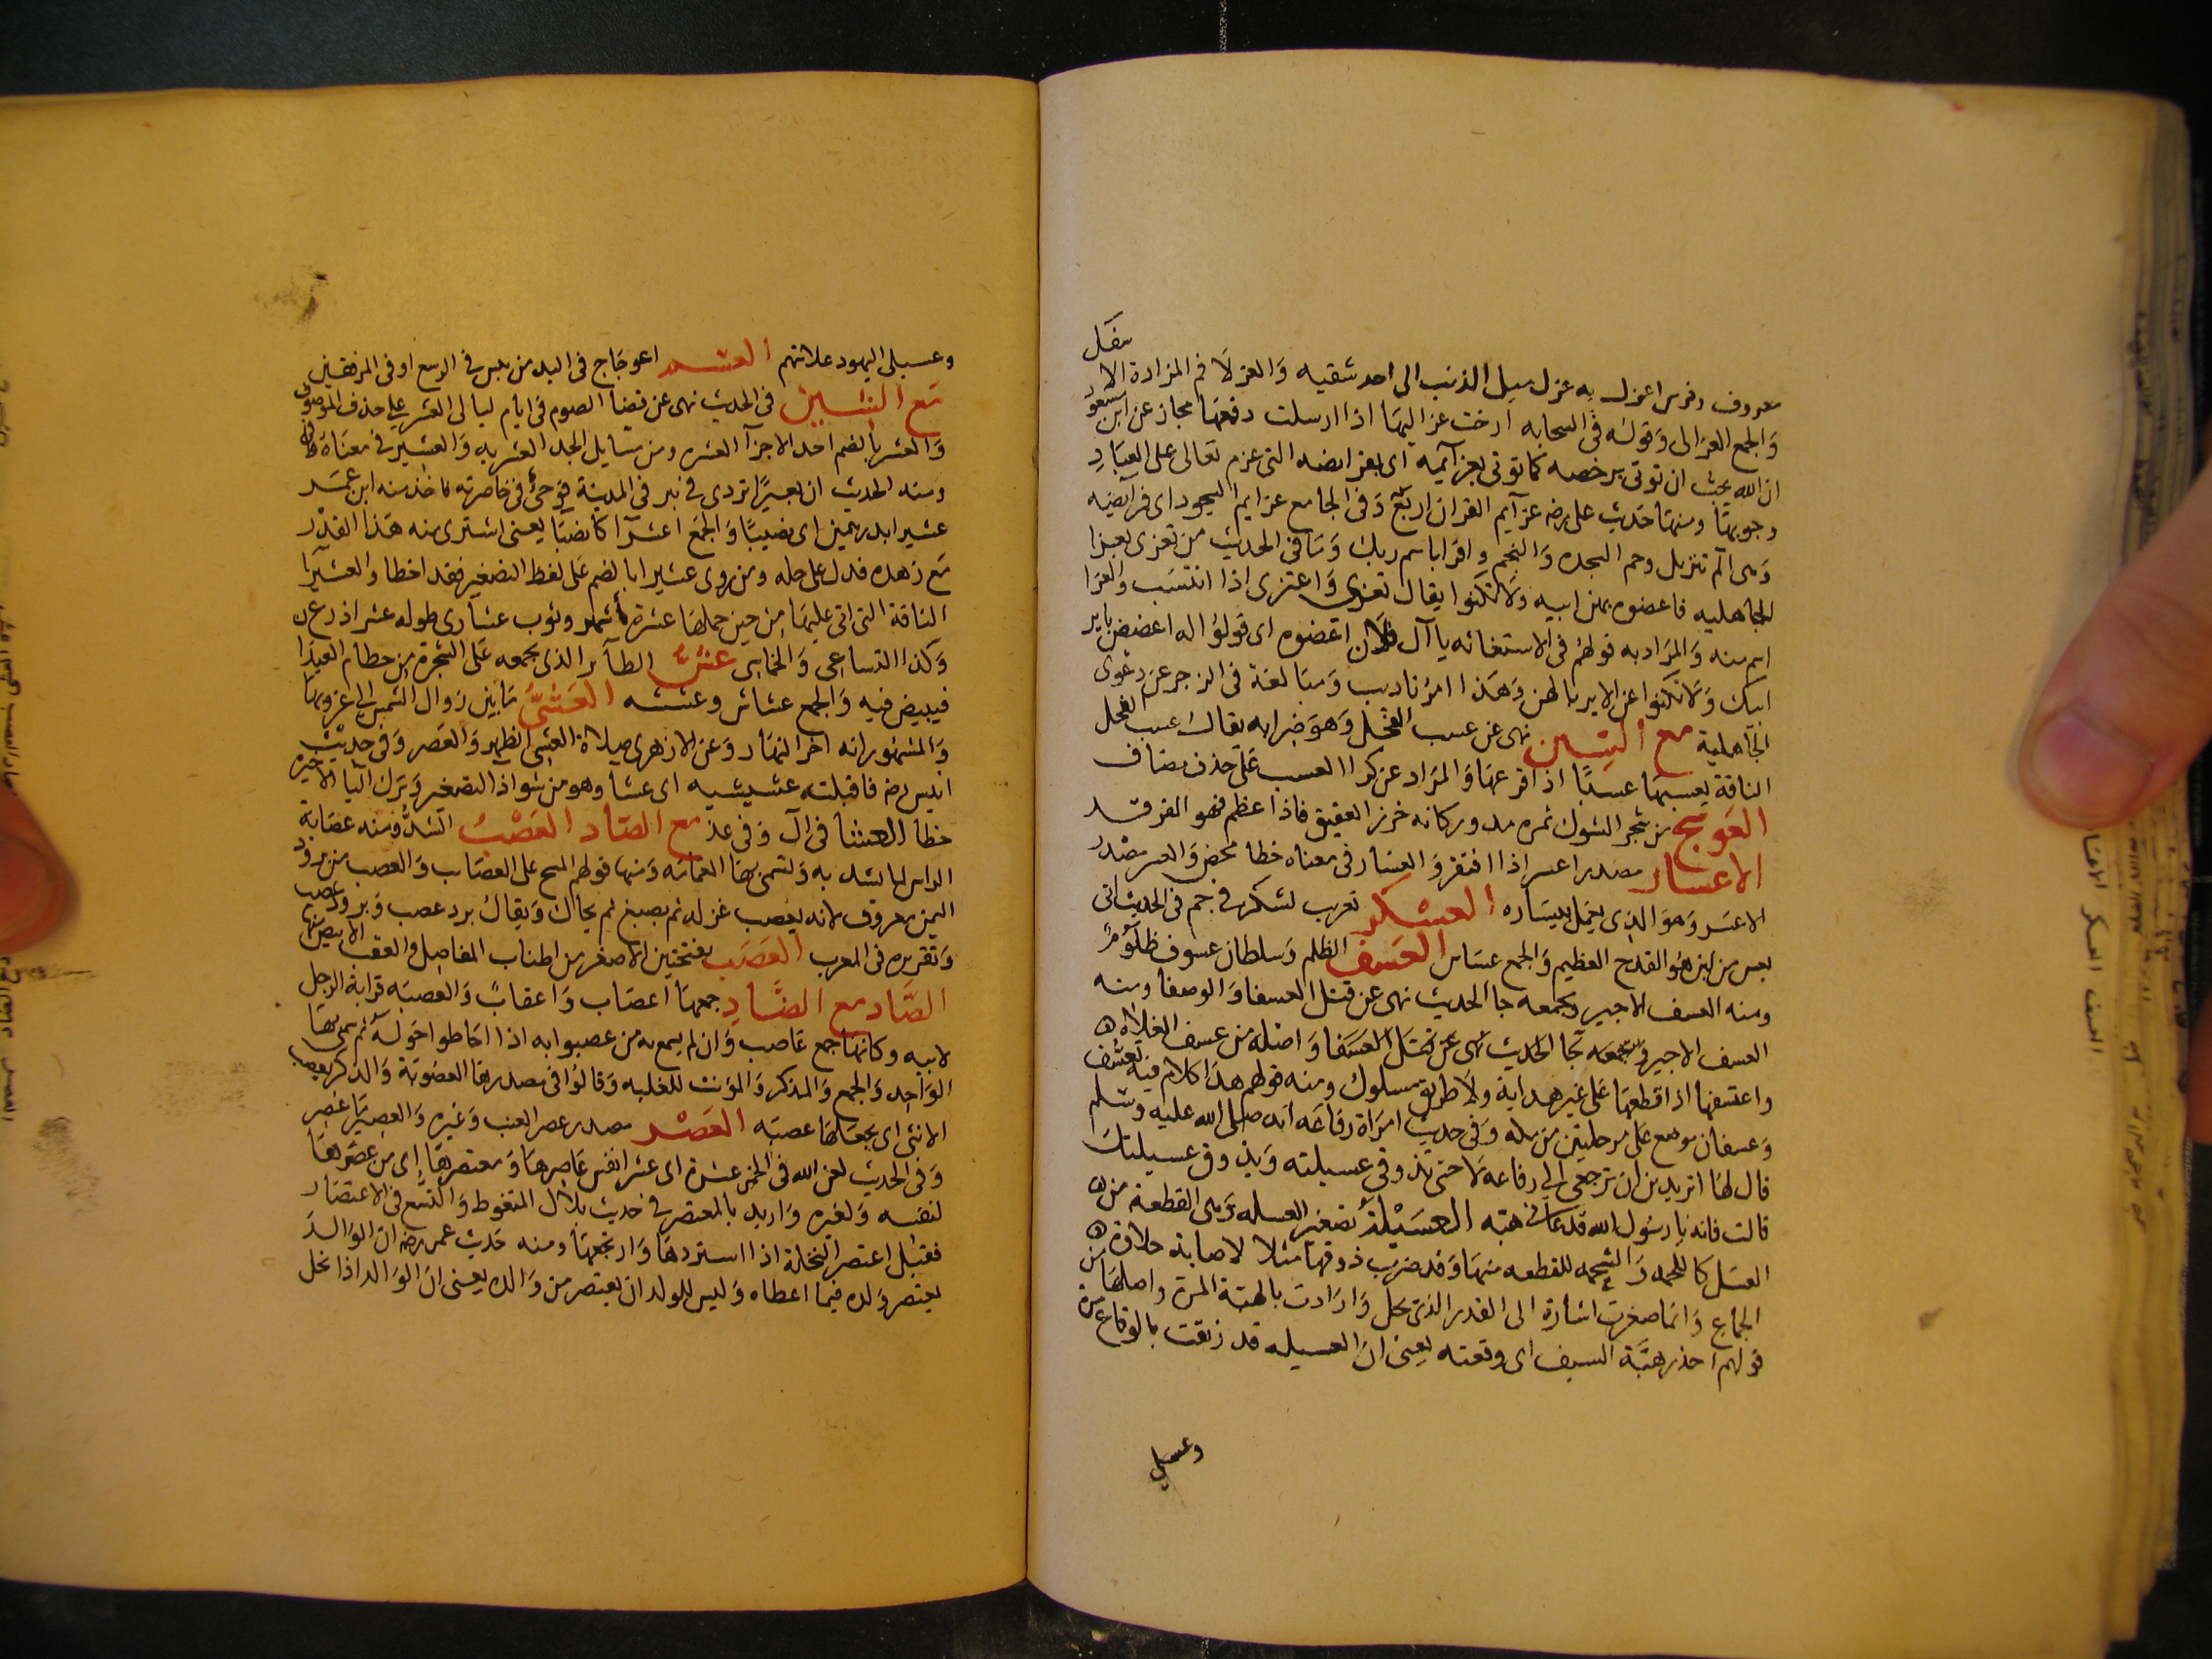 معروف وفرس اعزل به عزل ميل الذنب الى احد شقيه وَالعزلَا فم المزادة الا سفل
وَالجمع العزالى وَقوله فى السحابه ارخت عزاليها اذا ارسلت دفعها مجاز عن ابن مسعود
ان الله يحب ان توتى برخصه كما توتى بعزايمه اى بفرايضه التى عزم تعالى على العباد
وجوبها ومنها حديث على رضه عزايم القران اربع وَفى الجامع عزايم السجود اى فرايضه
وَهى الم تنزيل وحم السجده وَالنجم واقرا باسم ربك وَمَا فى الحديث من تعزى بعزا
الجاهليه فاعضوه بهن ابيه وَلا تكنوا يقال تعزى وَاعتزى اذا انتسب وَالعزا
اسم منه وَالمراد به قولهم فى الاستغاثه يا آل فلان اعضوه اى قولوا له اعضض باير
ابيك وَلا تكنوا عن الاير بالهن وَهَذا امر تاديب وَمبالغة فى الزجر عن دعوى
الجاهلية مع السين نهى عن عسب الفحل وَهو ضرابه يقال عسب الفحل
الناقة يعسبها عسبًا اذا قرعها وَالمراد عن كرا العسب على حذف مضاف
العوسج من شجر الشوك ثمره مدور كانه خرز العقيق فاذا عظم فهو الغرقد
الاعسار مصدر اعسر اذا افتقر وَالعسار فى معناه خطا محض وَالعسر مصدر
الاعسر وَهو الذى يعمل بيساره العسكر تعريب لشكر فى جم فى الحديث اتى
بعس من لبن هو القدح العظيم وَالجمع عساس العسف الظلم وَسلطان عسوف ظلوم
ومنه العسف الاجير وَبجمعه جا الحديث نهى عن قتل العسفا وَالوصفا ومنه
العسف الاجير وَبجمعه جا الحديث نهى عن قتل العسفا وَاصله من عسف الفلاة
واعتسفها اذا قطعها على غير هداية ولا طريق مسلوك ومنه قولهم هذا كلام فيه تعسف
وَعسفان موضع على مرحلتين من مكه وَفى حديث امراة رفاعه انه صلى الله عليه وسلم
قال لها اتريدين ان ترجعى الى رفاعه لا حتى تذوقى عسيلته وَيذوق عسيلتك
قالت فانه يا رسول الله قد عا فى هبه العسيلة تصغير العسله وَهى القطعة من
العسل كاللحمه وَالشحمه للقطعه منها وَقد ضرب ذوقها مثلا لاصابة حلاوة
الجماع وَانما صغرت اشارة الى القدر الذى يحل وَارادت بالهبة المرة واصلها من
قولهم احذر هبة السيف اى وقعته يعنى ان العسيله قد ذيقت بالوقاع مرة
وعسيلى
وعسيلى اليهود علامتهم العشد اعوجاج فى اليد من يبس فى الرسغ او فى المرفقين
مع الشين فى الحديث نهى عن قضا الصوم فى ايام ليالى العشر على حذف الموصوف
وَالعشر بالضم احد الاجزآ العشره ومن مسايل الجد العشريه وَالعشير فى معناه
ومنه الحديث ان بعيرًا تردى فى بير فى المدينة فوجئ فى خاصرته فاخذ منه ابن عمر
عشيرا بدرهمين اى نصيبًا وَالجمع اعشرآ كانصبا يعنى اشترى منه هذا القدر
مع زهده فدل على حله ومن روى عشيرا بالضم على لفظ التصغير فقد اخطا وَالعشرآ
الناقة التى اتى عليها من حين حملها عشرة اشهر وثوب عشارى طوله عشر اذرع
وَكذا التساعى وَالخماسى عش الطآير الذى يجمعه على الشجرة من حطام العيدان
فيبيض فيه وَالجمع عشاش وعششه العشى مابين زوال الشمس الى غروبها
وَالمشهور انه اخر النهار وَعن الازهرى صلاة العشى الظهر وَالعصر وَفى حديث
انيس رضه فاقبلت عشيشيه اى عشا وهو من شواذ التصغير وَترك اليا الاخيره
خطا العشا فى ال وَفى عذ مع الصاد العصب الشد ومنه عصابة
الراس لما يشد به وَتسمى بها العمامه وَمنها قولهم المسح على العصايب وَالعصب من برود
اليمن معروف لانه يعصب غزله ثم يصبغ ثم يحاك وَيقال برد عصب وَبرود عصب
وَتقريره فى المعرب العصب بفتحتين الاصفر من اطناب المفاصل وَالعقب الابيض منها
الصَّاد مع الصَّاد جمعها اعصاب وَاعقاب وَالعصبه قرابة الرجل
لابيه وكانها جمع عاصب وَان لم يسمع به من عصبوا به اذا احاطوا حوله ثم سمى بها
الواحد وَالجمع وَالمذكر وَالمونث للغلبه وَقالوا فى مصدرها العصوبة وَالذكر يعصب
الانثى اى يجعلها عصبه العصر مصدر عصر العنب وَغيره وَالعصير ما عصر
وَفى الحديث لعن الله فى الخمر عشرة اى عشر انفس عاصرها وَمعتصرها اى من عصرها
لنفسه وَلغيره وَاريد بالمعتصر فى حديث بلال المتغوط وَالتسع فى الاعتصار
فقيل اعتصر النخلة اذا استردها وَارتجعها ومنه حديث عمر رضه ان الوالد
يعتصر ولده فيما اعطاه وَليس للولد ان يعتصر من وَالده يعنى ان الوالد اذا نحل